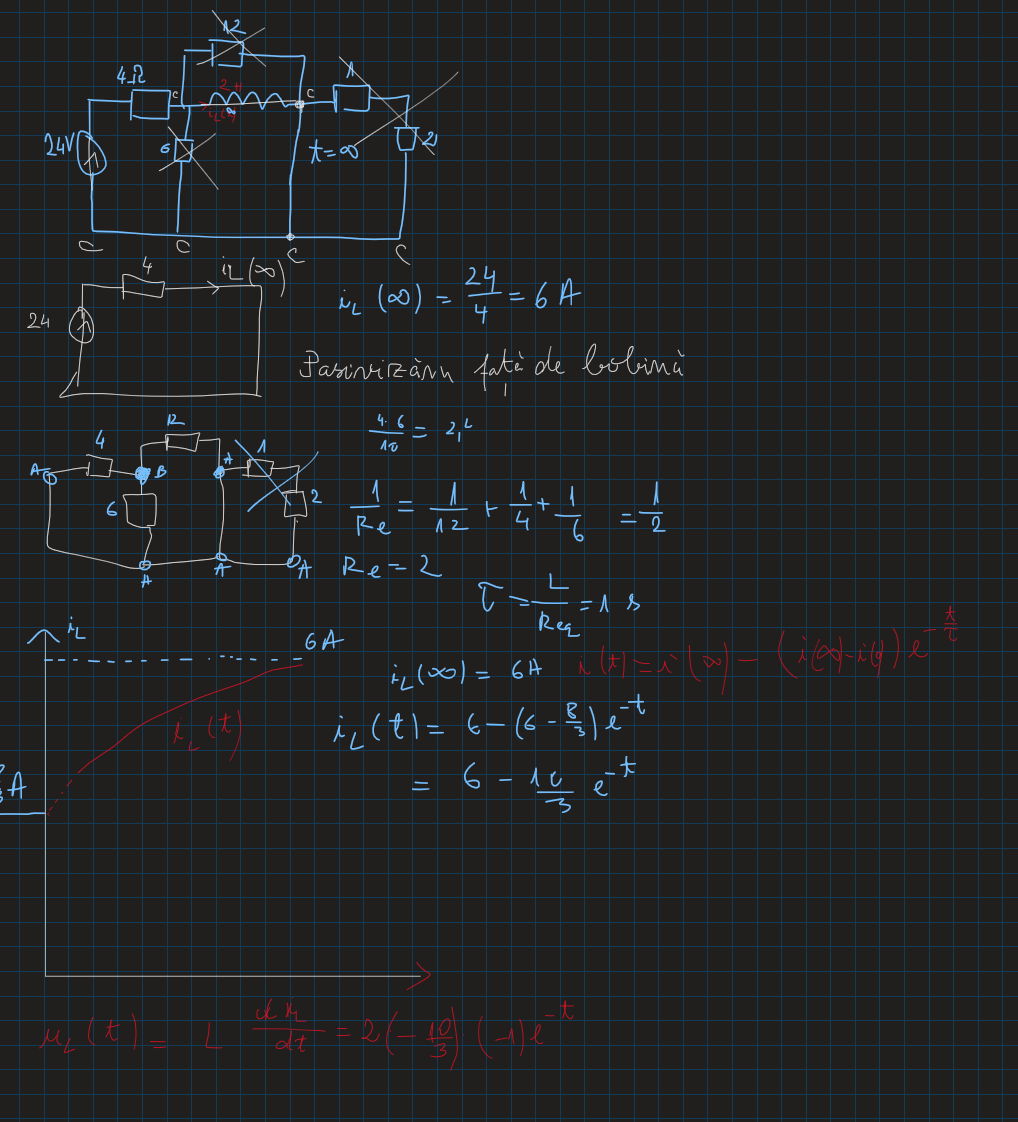 12
4Ω
2H
C
C
1
iL(t)
24V
6
t=∞
2
C
C
C
C
4
iL(∞)
24
iL(∞) = 24/4 = 6 A
Pasivizăm față de bobină
4·6/10 = 2,4
12
4
A
B
A
1
6
2
A
A
A
1/Re = 1/12 + 1/4 + 1/6 = 1/2
Re = 2
τ = L/Req = 1 s
iL
6A
iL(∞) = 6A
i(t) = i(∞) - (i(∞)-i(0)) e^-t/τ
iL(t)
iL(t) = 6 - (6 - 8/3) e^-t
= 6 - 10/3 e^-t
uL(t) = L diL/dt = 2(-10/3)·(-1)e^-t